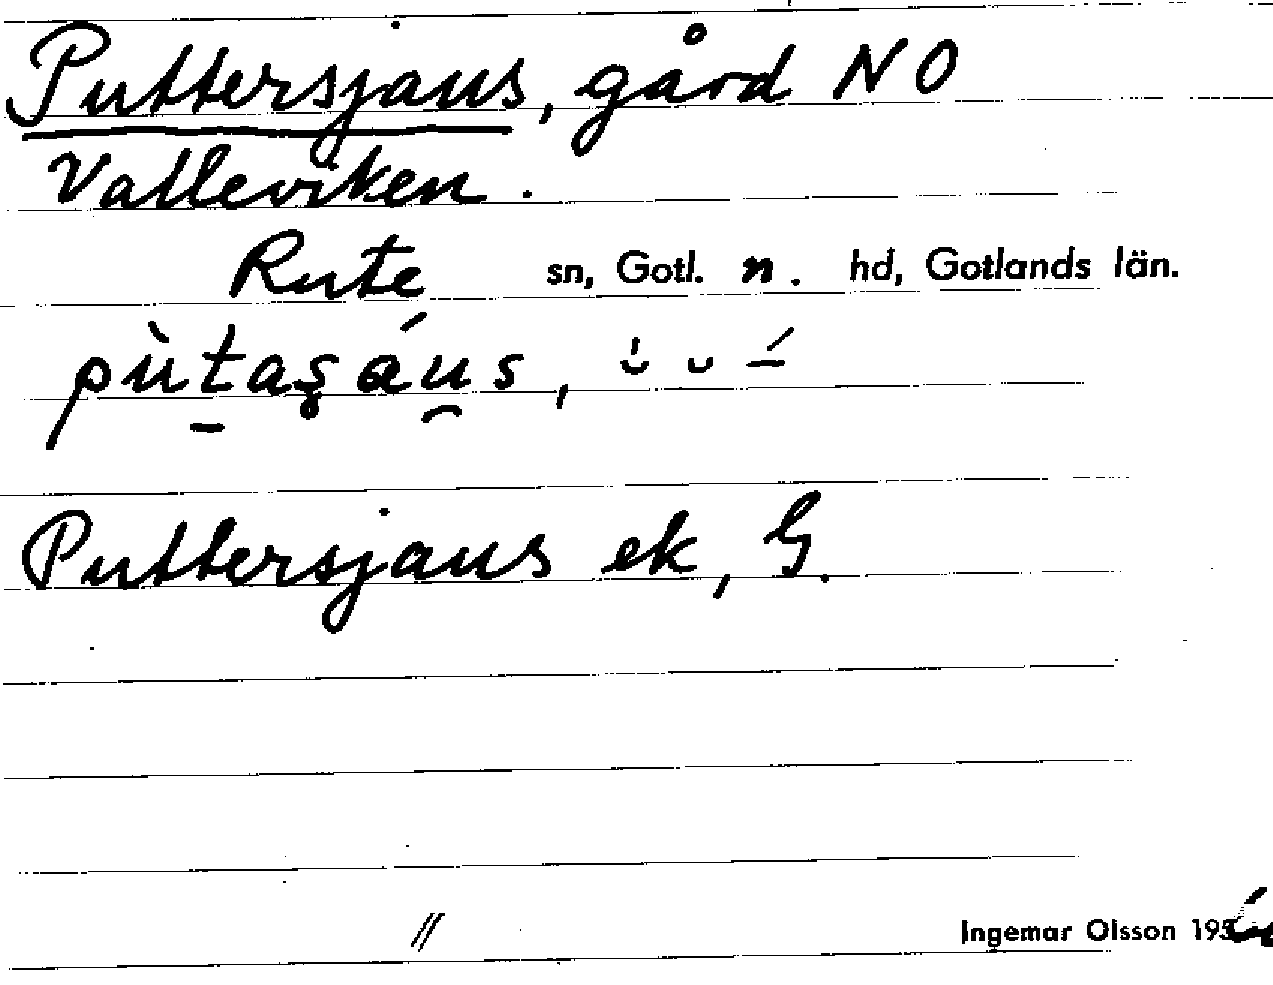 Puttersjaus, gård NO
Valleviken.
Rute sn, Gotl. n. hd, Gotlands län.
pùt̠aşáu̯s,
Puttersjaus ek, G.
//
Ingemar Olsson